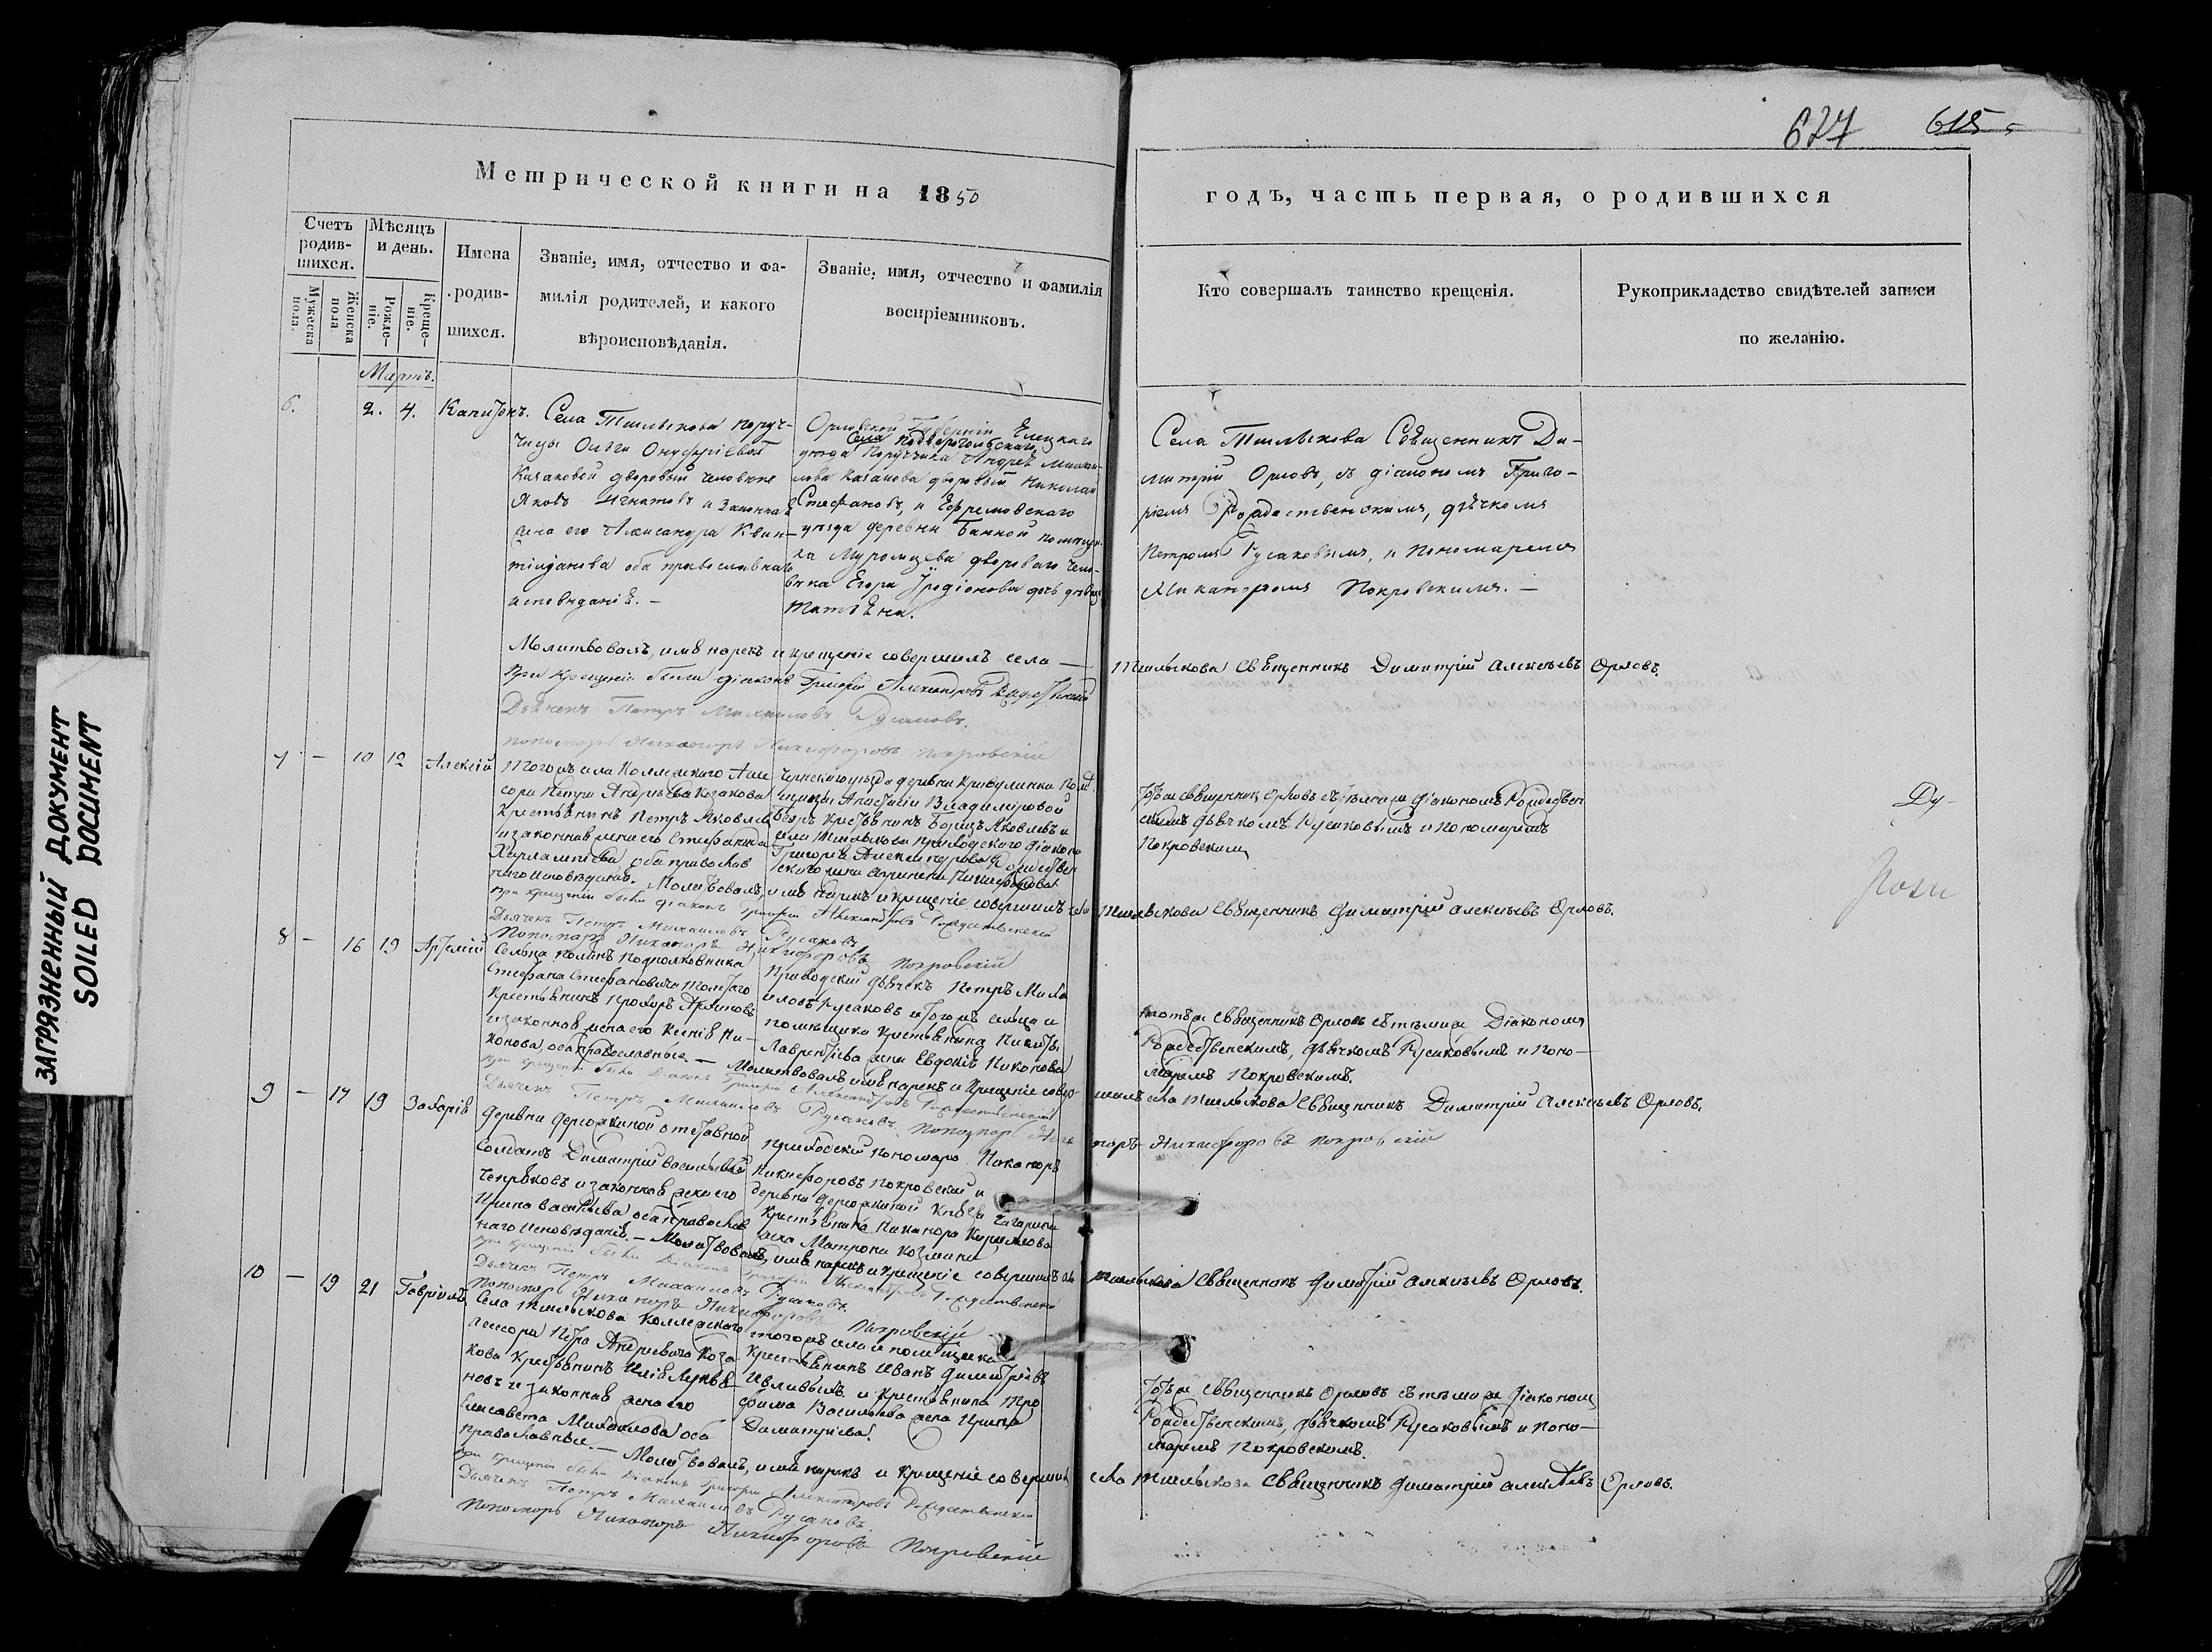 ЗАГРЯЗНЕННЫЙ ДОКУМЕНТ
SOILED DOCUMENT
627 615
Метрической книги на 1850
годъ, часть первая, о родившихся
Счетъ родив-шихся.
Мужеска пола.
Женска пола.
Мѣсяцъ и день.
Рожде-ніе.
Креще-ніе.
Имена
родив-
шихся.
Званіе, имя, отчество и фа-
милія родителей, и какого
вѣроисповѣданія.
Званіе, имя, отчество и фамилія
воспріемниковъ.
Кто совершалъ таинство крещенія.
Рукоприкладство свидѣтелей записи
по желанію.
Мартъ.
6. 2. 4. Капитонъ.
Села Тшлыкова поруч-
чицы Ольги Онуфріевой
Казаковой дворовый человекъ
Яковъ Игнатовъ и законная
жена его Александра Кван-
оба православнаго
исповеданія. —
Орловской Губерніи Елецкаго
уезда Поручика Андрея
Казакова дворовый Николай
Стефановъ, и Ефремовскаго
уезда деревни Банной
Муромцева двороваго чело-
века Егора Родіонова дочь девица
Татіяна.
Села Тшлыкова Священникъ Ди-
митрій Орловъ, съ діакономъ Григо-
ріемъ Рождественскимъ, дьячкомъ
Петромъ Русаковымъ, и пономаремъ
Никаноромъ Покровскимъ. —
Молитвовалъ, имя нарекъ и крещеніе совершилъ села —
Тшлыкова Священникъ Димитрій Алексеевъ Орловъ.
При крещеніи были діаконъ Григорій Александровъ Рождественскій
Дьячекъ Петръ Михаиловъ Русаковъ.
Пономарь Никаноръ Никифоровъ Покровскій
7 — 10 12 Алексій
Тогожъ села Коллежскаго Ассе
сора Петра Андреева Козакова
Крестьянинъ Петръ Яковлев
и законная жена его Стефанида
Харлампіева, оба православ
наго исповеданія.
уезда деревни Кривулинки Пом
щицы Анастасіи Владиміровой
Крестьянинъ Борисъ Яковлевъ и
села Тшлыкова приходскаго діакона
Григорія Александрова Рождествен
скаго жена Никифорова
Тотъже священникъ Орловъ съ тѣмиже діакономъ Рождествен
скимъ дьячкомъ Русаковымъ и пономаремъ
Покровскимъ
Молитвовалъ, имя нарекъ и крещеніе совершилъ села
Тшлыкова Священникъ Димитрій Алексеевъ Орловъ.
При крещеніи были діаконъ Григорій Александровъ Рождественскій
Дьячекъ Петръ Михаиловъ Русаковъ
Пономарь Никаноръ Никифоровъ Покровскій
8 — 16 19 Артемій
Сельца Подполковника
Стефана Стефановича Толстого
Крестьянинъ Прохоръ
и законная жена его Ксенія Ни-
конова, оба православные. —
Приходскій дьячекъ Петръ Миха
иловъ Русаковъ и тогожъ сельца и
помещика Крестьянина Никиты
Лаврентіева жена Евдокія Никонова
Тотъже Священникъ Орловъ съ тѣмиже Діакономъ
Рождественскимъ, дьячкомъ Русаковымъ и поно—
маремъ Покровскимъ.
Молитвовалъ имя нарекъ и крещеніе совер-
шилъ села Тшлыкова Священникъ Димитрій Алексеевъ Орловъ.
При крещеніи были Діаконъ Григорій Александровъ Рождественскій
Дьячекъ Петръ Михаиловъ Русаковъ. Пономарь Ника
норъ Никифоровъ Покровскій
9 — 17 19 Захарія
Деревни отставной
Солдатъ Димитрій Васильевъ
и законная жена его
Ирина Васильева оба православ
наго исповеданія. —
Приходскій пономарь Никаноръ
Никифоровъ Покровскій и
деревни Князя Гагарина
Крестьянина Никанора Кириллова
жена Матрона Козмина
Молитвовалъ, имя нарекъ и крещеніе совершилъ села
Тшлыкова Священникъ Димитрій Алексеевъ Орловъ.
При крещеніи были Діаконъ Григорій Александровъ Рождественскій
Дьячекъ Петръ Михаиловъ Русаковъ.
Пономарь Никаноръ Никифоровъ Покровскій
10 — 19 21 Гавріилъ
Села Тшлыкова Коллежскаго
Ассесора Петра Андреевича Коза-
кова Крестьянинъ Илія
и законная жена его
Елисавета Михаилова оба
православные. —
тогожъ села и помещика
Крестьянинъ Иванъ Димитріевъ
и Крестьянина Тро
фима Васильева жена Ирина
Димитріева.
Тотъже Священникъ Орловъ съ тѣмиже діакономъ
Рождественскимъ, дьячкомъ Русаковымъ и поно—
маремъ Покровскимъ.
Молитвовалъ, имя нарекъ и крещеніе совершилъ
села Тшлыкова Священникъ Димитрій Алексеевъ Орловъ.
При крещеніи были Діаконъ Григорій Александровъ Рождественскій
Дьячекъ Петръ Михаиловъ Русаковъ
Пономарь Никаноръ Никифоровъ Покровскій
Ду-